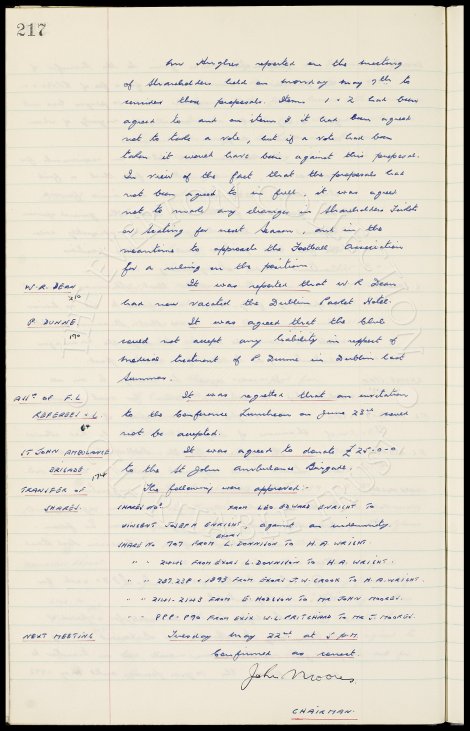 217
Mr Hughes reported on the meeting
of Shareholders held on Monday May 7th to
consider these proposals. Items 1 + 2 had been
agreed to and on item 3 it had been agreed
not to take a vote, but if a vote had been
taken it would have been against this proposal.
In view of the fact that the proposals had
not been agreed to in full, it was agreed
not to make any changes in Shareholders Tickets
or Seating for next Season, and in the
meantime to approach the Football Association
for a ruling on the position.
W. R. DEAN
210
It was reported that W R Dean
had now vacated the Dublin Packet Hotel.
P DUNNE.
190
It was agreed that the Club
could not accept any liability in respect of
medical treatment of P Dunne in Dublin last
Summer.
ASSn OF F.L
REFEREES & L.
It was regretted that an invitation
to the Conference Luncheon on June 23rd could
not be accepted.
ST JOHN AMBULANCE
BRIGADE
It was agreed to donate £25-0-0
to the St John Ambulance Brigade.
TRANSFER OF
SHARES.
The following were approved:-
SHARES NOS FROM LEO EDWARD ENRIGHT TO
VINCENT JOSEPH ENRIGHT, against an indemnity
SHARE NO 707 FROM EXORS L. DONNISON TO H. A WRIGHT
" " FROM EXORS L. DONNISON TO H. A. WRIGHT.
" " 237.238 & 1893 FROM EXORS J. W. CROOK TO H. A. WRIGHT.
" " 2141-2143 FROM E. HODGSON TO MR JOHN MOORES.
" " 889-890 FROM EXIX W. L. PRITCHARD TO MR J. MOORES.
NEXT MEETING
Tuesday May 22nd at 5 PM.
Confirmed as correct.
John Moores
CHAIRMAN.